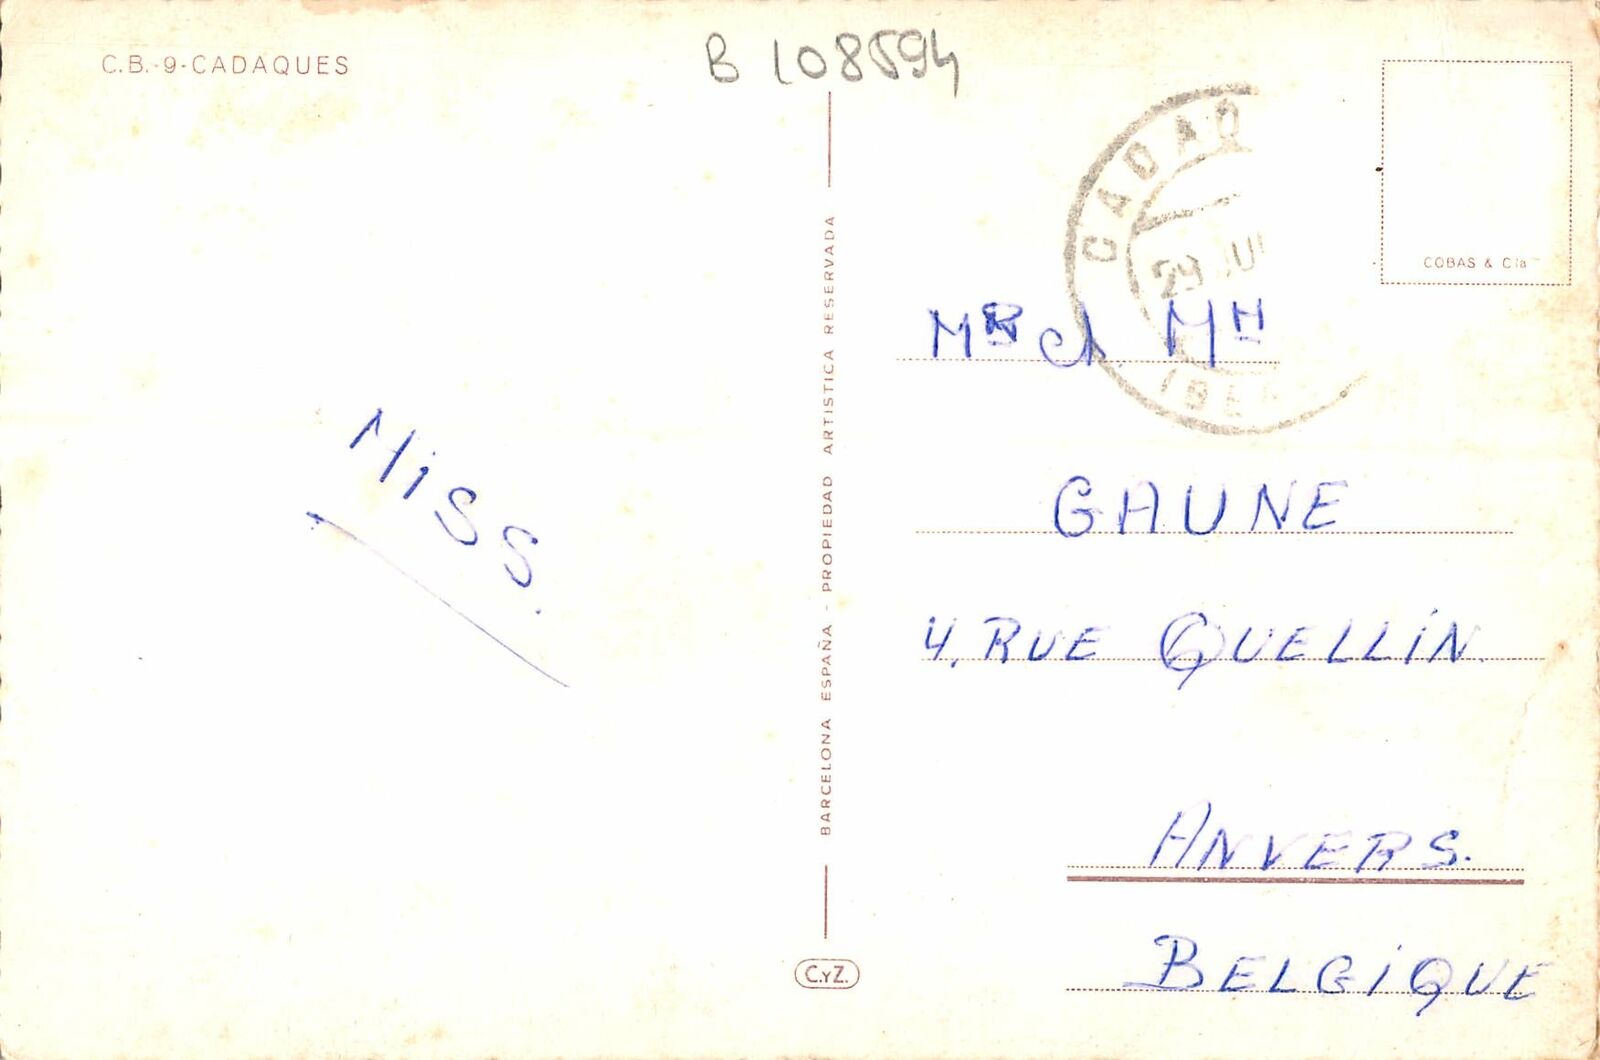 C.B.-9-CADAQUES
B 108594
CADAQ
29 JU
COBAS & Cía
BARCELONA ESPAÑA - PROPIEDAD ARTISTICA RESERVADA
MISS.
MR
GAUNE
4, RUE QUELLIN.
ANVERS.
BELGIQUE
C.YZ.